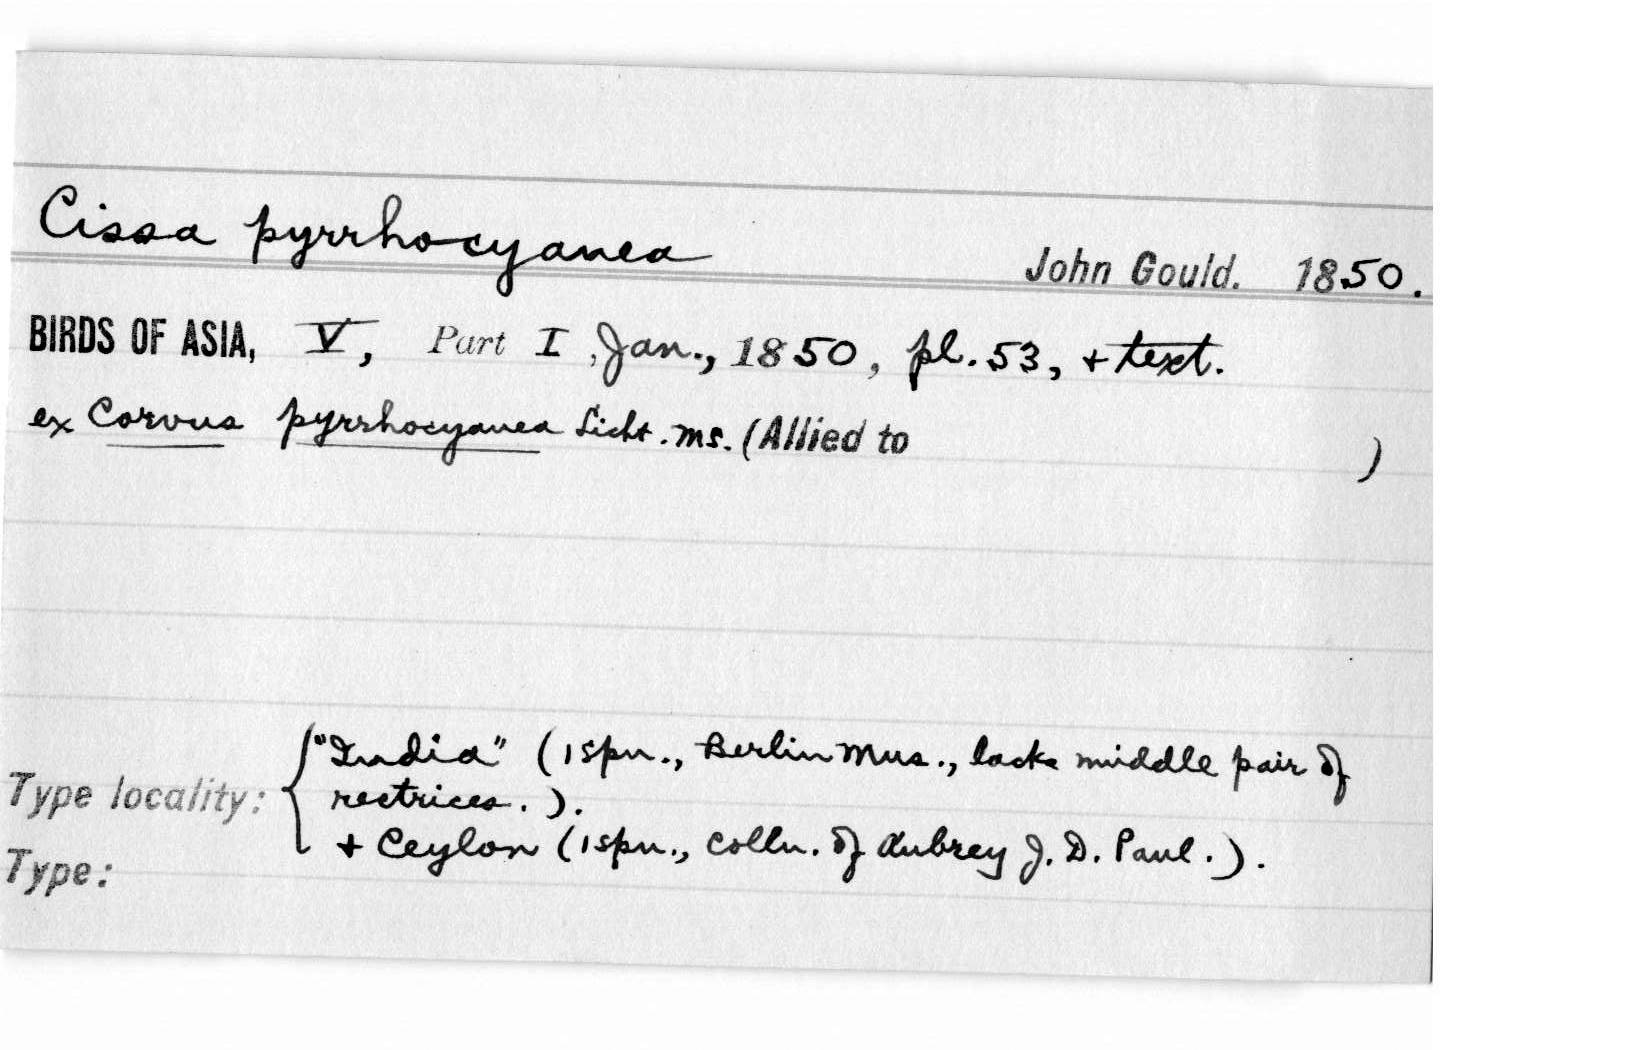 Cissa pyrrhocyanea
John Gould. 1850.
BIRDS OF ASIA, V, Part I, Jan., 1850, pl. 53, + text.
ex Corvus pyrrhocyanea Licht. ms. (Allied to )
"India" (1 spn., Berlin Mus., lacks middle pair of
Type locality: { rectrices.).
+ Ceylon (1 spn., colln. of Aubrey J. D. Paul.).
Type: